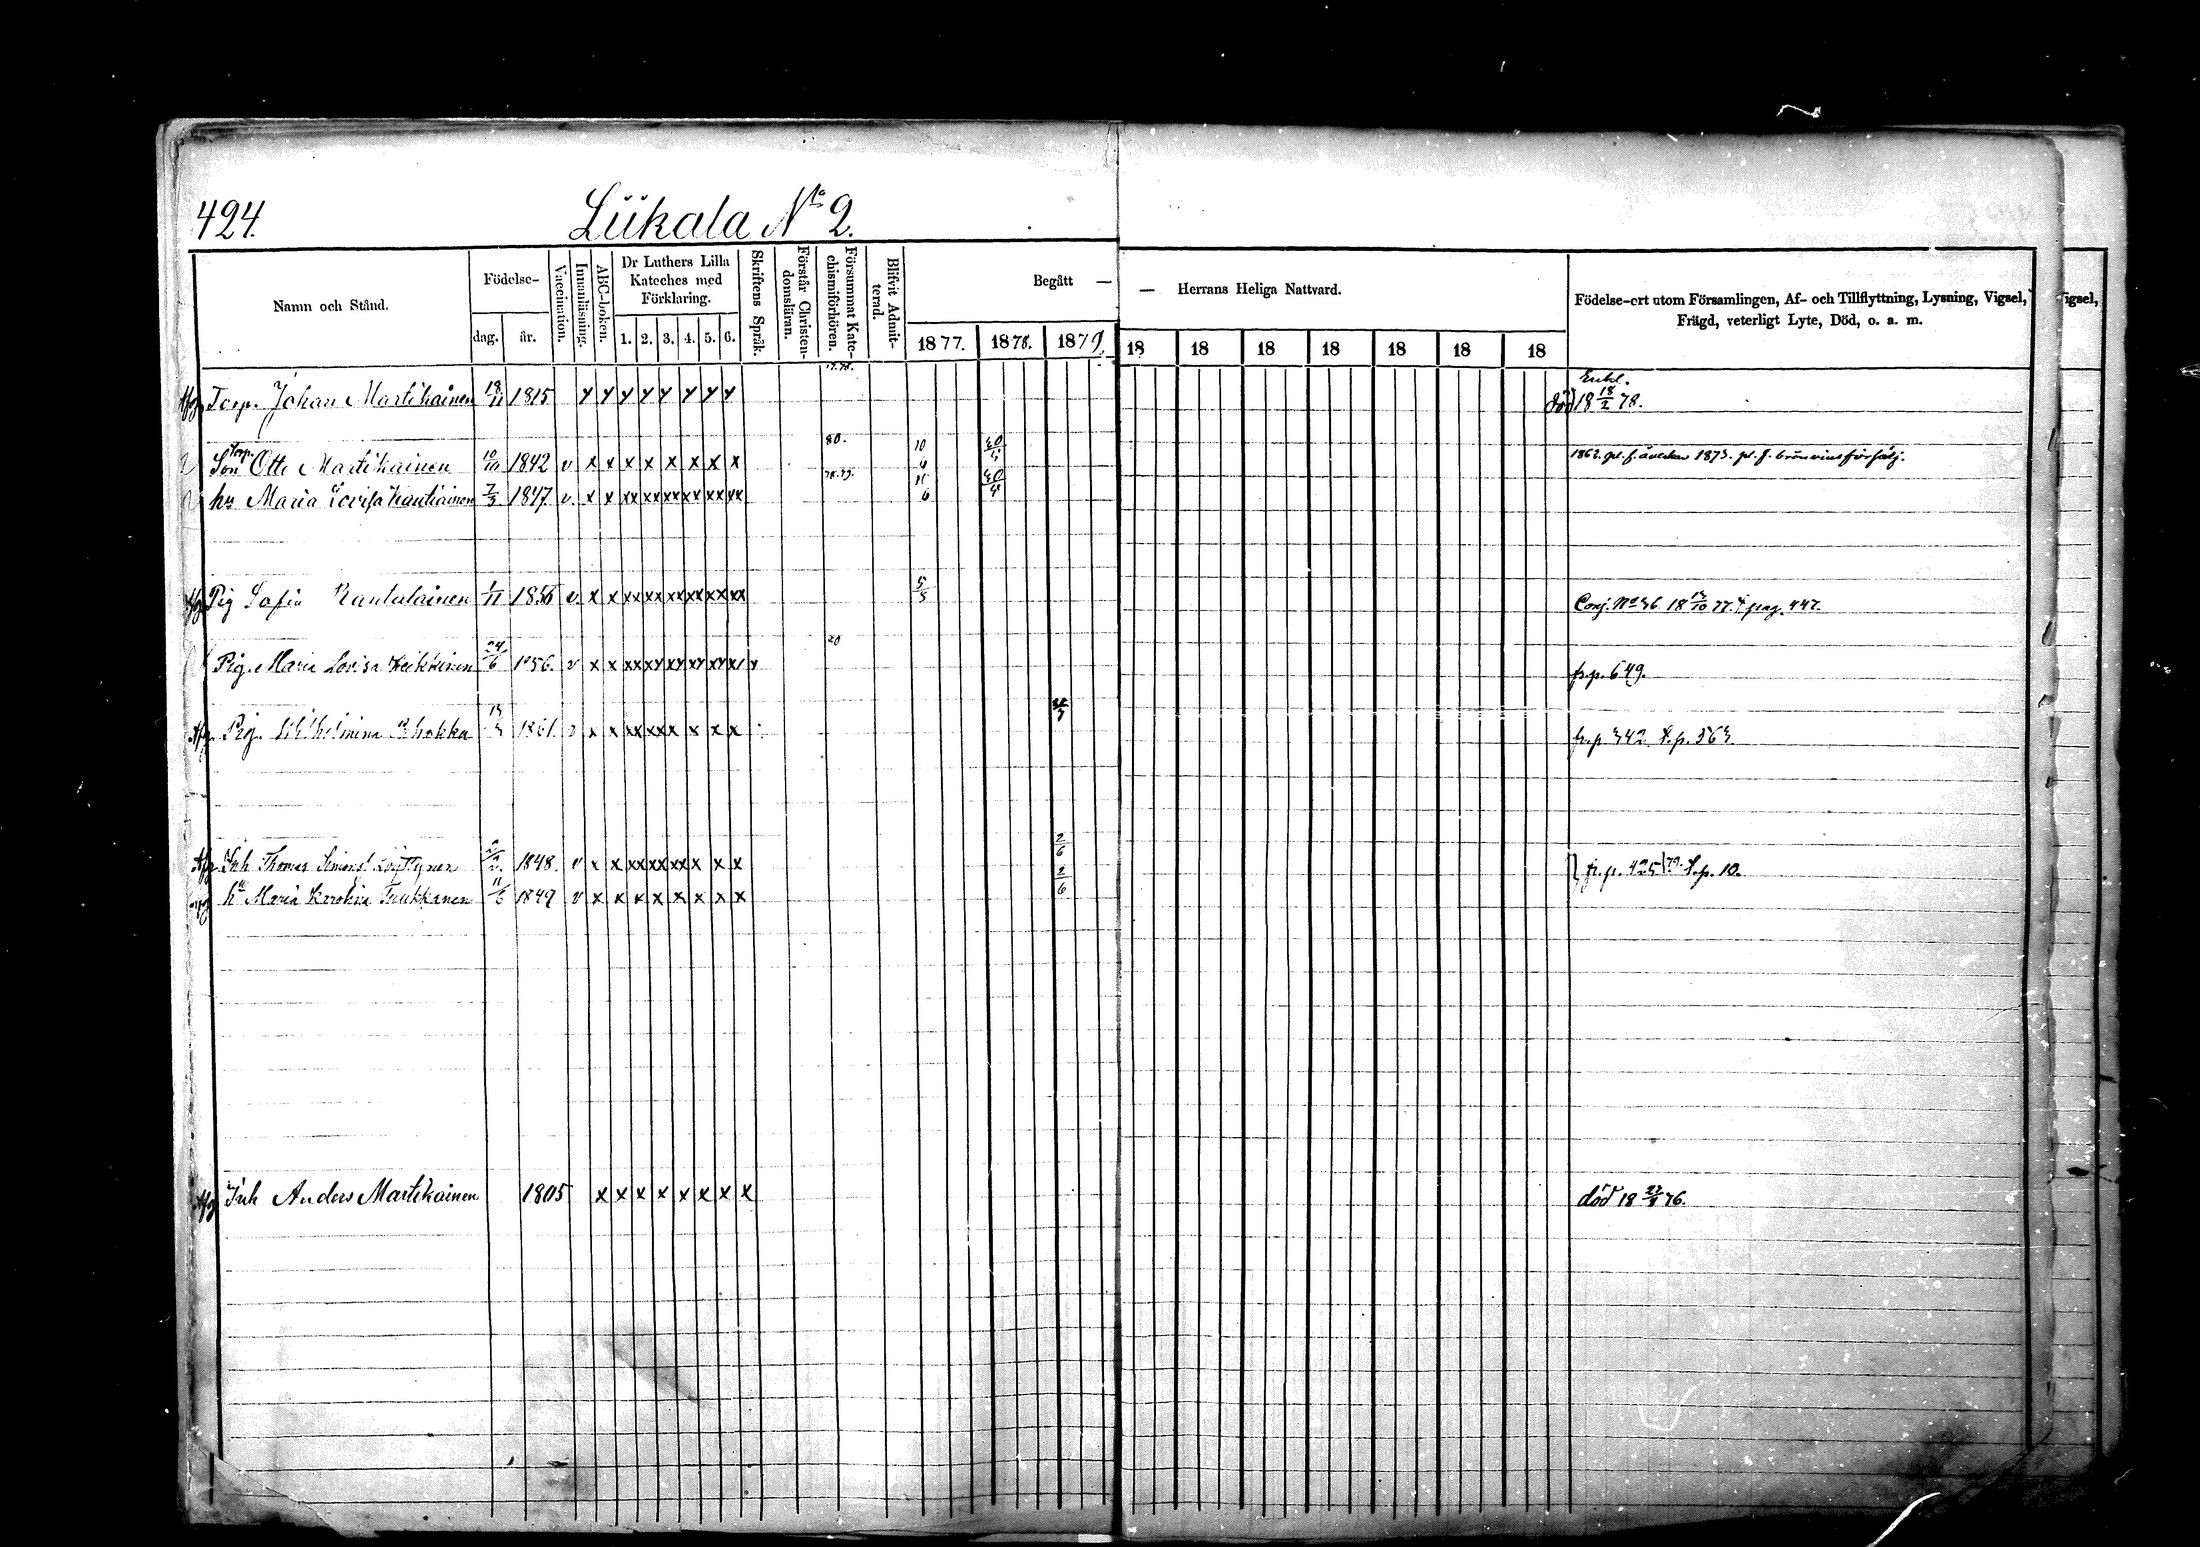 424.
Liikala No 2.
Namn och Stånd.
Födelse-
dag.
år.
Vaccination.
Innanläsning.
ABC-boken.
Dr Luthers Lilla
Kateches med
Förklaring.
1. 2. 3. 4. 5. 6.
Skriftens Språk.
Förstår Christen-
domsläran.
Försummat Kate-
chismiförhören.
Blifvit Admit-
terad.
Begått —
— Herrans Heliga Nattvard.
1877. 1878. 1879. 18 18 18 18 18 18 18
Födelse-ort utom Församlingen, Af- och Tillflyttning, Lysning, Vigsel,
Frägd, veterligt Lyte, Död, o. a. m.
igsel,
Torp. Johan Martikainen 18/11 1815 Enkl.
död 18 18/2 78.
Torp.
Son Otto Martikainen 10/10 1842 v x x x x x x x x 80. 10
1862. pl. f. 1873. pl. f. brännvinsförsälj.
hu Maria Lovisa 7/3 1847. v. x x xx xx xx xx xx xx 78.79. 6
Pig Sofia Rautalainen 1/11 1856 v. x x xx xx xx xx xx xx 5/5 Conj. No 36. 18 13/10 77. pag. 447.
Pig. Maria Lovisa Heikkinen 24/6 1856. v x x 20 fr. p. 649.
Pig. Wilhelmina 1861. v x x xx xx x x x x fr. p. 342 t. p. 363.
Inh Thomas Löyttynen 1848. v x x xx xx xx x x x 2/6 fr. p. 425 79. t. p. 10.
hu Maria Karolina Tuukkanen 11/6 1849 v x x x x x x x x 2/6
Inh Anders Martikainen 1805 x x x x x x x x död 18 76.